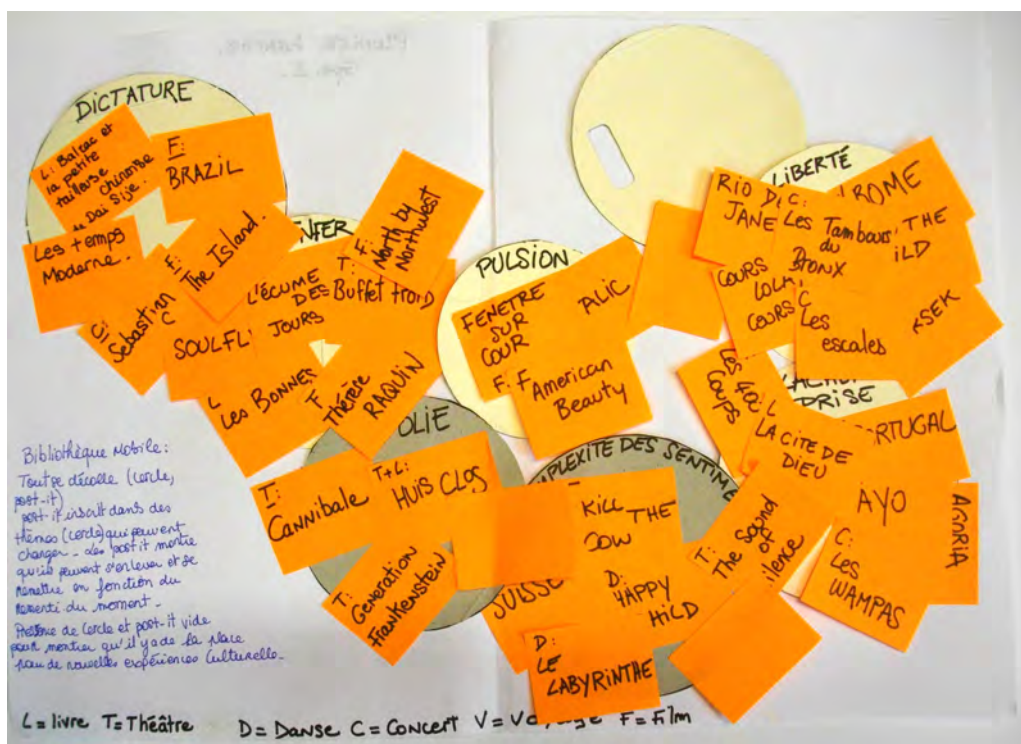 DICTATURE
L: Balzac et
la petite
tailleuse
chinoise
Dai Sije.
F:
BRAZIL
Les temps
Moderne.
F:
The Island.
Sebastian
C
SOULFL
NFER
L'ÉCUME
DES
JOURS
F:
North by
Northwest
T:
Buffet froid
L
Les BONNES
F
Thérèse
RAQUIN
PULSION
FENETRE
SUR
COUR
F:
ALIC
F
American
Beauty
LIBERTÉ
RIO D
JANE
C:
Les Tambours
du
BRONX
ROME
THE
ILD
COURS
LOLA
COURS
C
Les
escales
ASEK
DRISE
Les 40
Coups
L
LA CITE DE
DIEU
RTUGAL
AYO
C:
LES
WAMPAS
OLIE
T:
Cannibale
T+L:
HUIS CLOS
T:
Generation
Frankenstein
MPLEXITE DES SENTIME
KILL THE
COW
D:
HAPPY
HILD
SUISSE
D:
LE
LABYRINTHE
T:
The Sound
of
ilence
Bibliothèque Mobile:
Tout se décolle (cercle,
post-it)
post-it inscrit dans des
thèmes (cercle) qui peuvent
changer - les post it montre
qu'ils peuvent s'enlever et se
remettre en fonction du
ressenti du moment -
de cercle et post-it vide
pour montrer qu'il y a de la place
pour de nouvelles expériences culturelle -
L = livre T = Théâtre D = Danse C = Concert V = Voyage F = Film